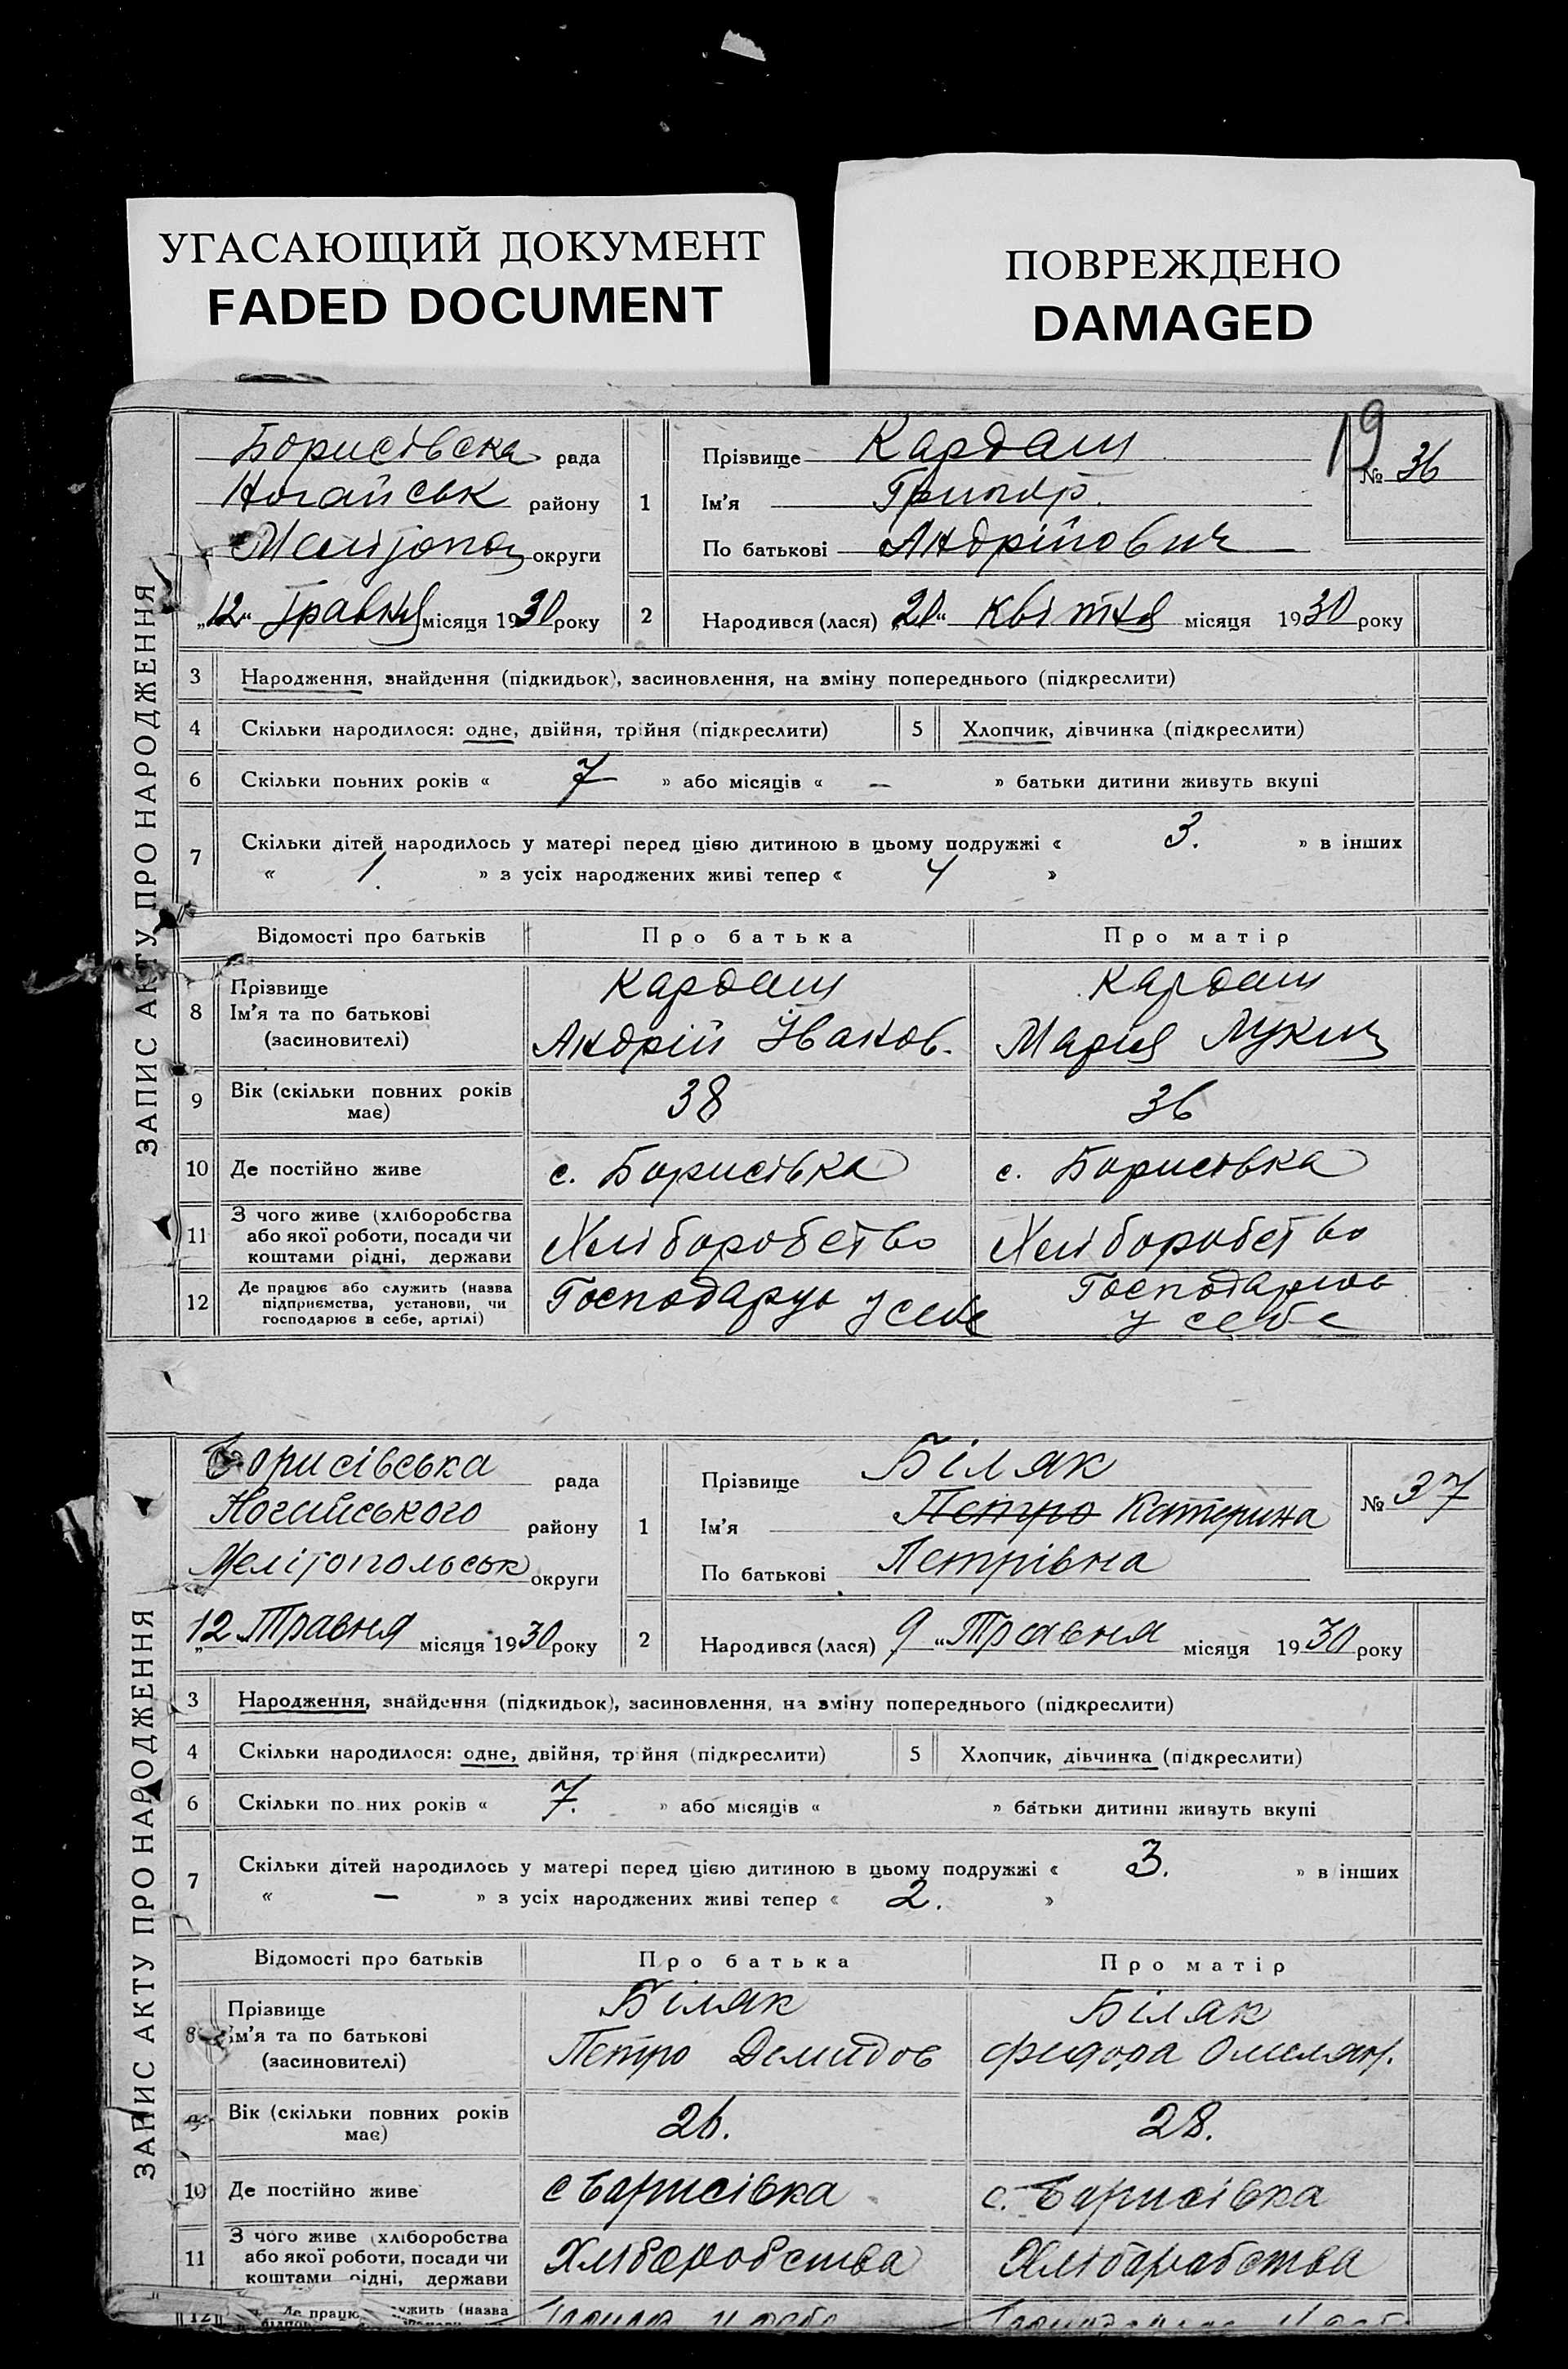 УГАСАЮЩИЙ ДОКУМЕНТ
FADED DOCUMENT
ПОВРЕЖДЕНО
DAMAGED
19
ЗАПИС АКТУ ПРО НАРОДЖЕННЯ
Борисівска рада
Ногайськ району
округи
„12“ Травня місяця 1930 року
1
Прізвище Кардаш
Ім'я
По батькові Андрійович
№ 36
2 Народився (лася) „20“ квітня місяця 1930 року
3 Народження, знайдення (підкидьок), засиновлення, на зміну попереднього (підкреслити)
4 Скільки народилося: одне, двійня, трійня (підкреслити) 5 Хлопчик, дівчинка (підкреслити)
6 Скільки повних років « 7 » або місяців « — » батьки дитини живуть вкупі
7 Скільки дітей народилось у матері перед цією дитиною в цьому подружжі « 3. » в інших
« 1. » з усіх народжених живі тепер « 4 »
Відомості про батьків Про батька Про матір
8 Прізвище Кардаш Кардаш
Ім'я та по батькові
(засиновителі) Андрій Іванов. Мария Лукин
9 Вік (скільки повних років має) 38 36
10 Де постійно живе с. Борисівка с. Борисівка
11 З чого живе (хліборобства
або якої роботи, посади чи Хліборобство Хліборобство
коштами рідні, держави
12 Де працює або служить (назва Господарує у себе Господарює
підприємства, установи, чи у себе
господарює в себе, артілі)
ЗАПИС АКТУ ПРО НАРОДЖЕННЯ
Борисівська рада
Ногайського району
Мелітопольськ округи
„12 Травня місяця 1930 року
1
Прізвище Біляк
Ім'я Петро Катерина
По батькові Петрівна
№ 37
2 Народився (лася) 9 “ Травня місяця 1930 року
3 Народження, знайдення (підкидьок), засиновлення, на зміну попереднього (підкреслити)
4 Скільки народилося: одне, двійня, трійня (підкреслити) 5 Хлопчик, дівчинка (підкреслити)
6 Скільки повних років « 7. » або місяців « » батьки дитини живуть вкупі
7 Скільки дітей народилось у матері перед цією дитиною в цьому подружжі « 3. » в інших
« — » з усіх народжених живі тепер « 2. »
Відомості про батьків Про батька Про матір
8 Прізвище Біляк Біляк
Ім'я та по батькові Петро Демидов Федора Омелян.
(засиновителі)
9 Вік (скільки повних років має) 26. 28.
10 Де постійно живе с Борисівка с. Борисівка
11 З чого живе (хліборобства
або якої роботи, посади чи Хліборобства Хліборобства
коштами рідні, держави
12 Де працює служить (назва